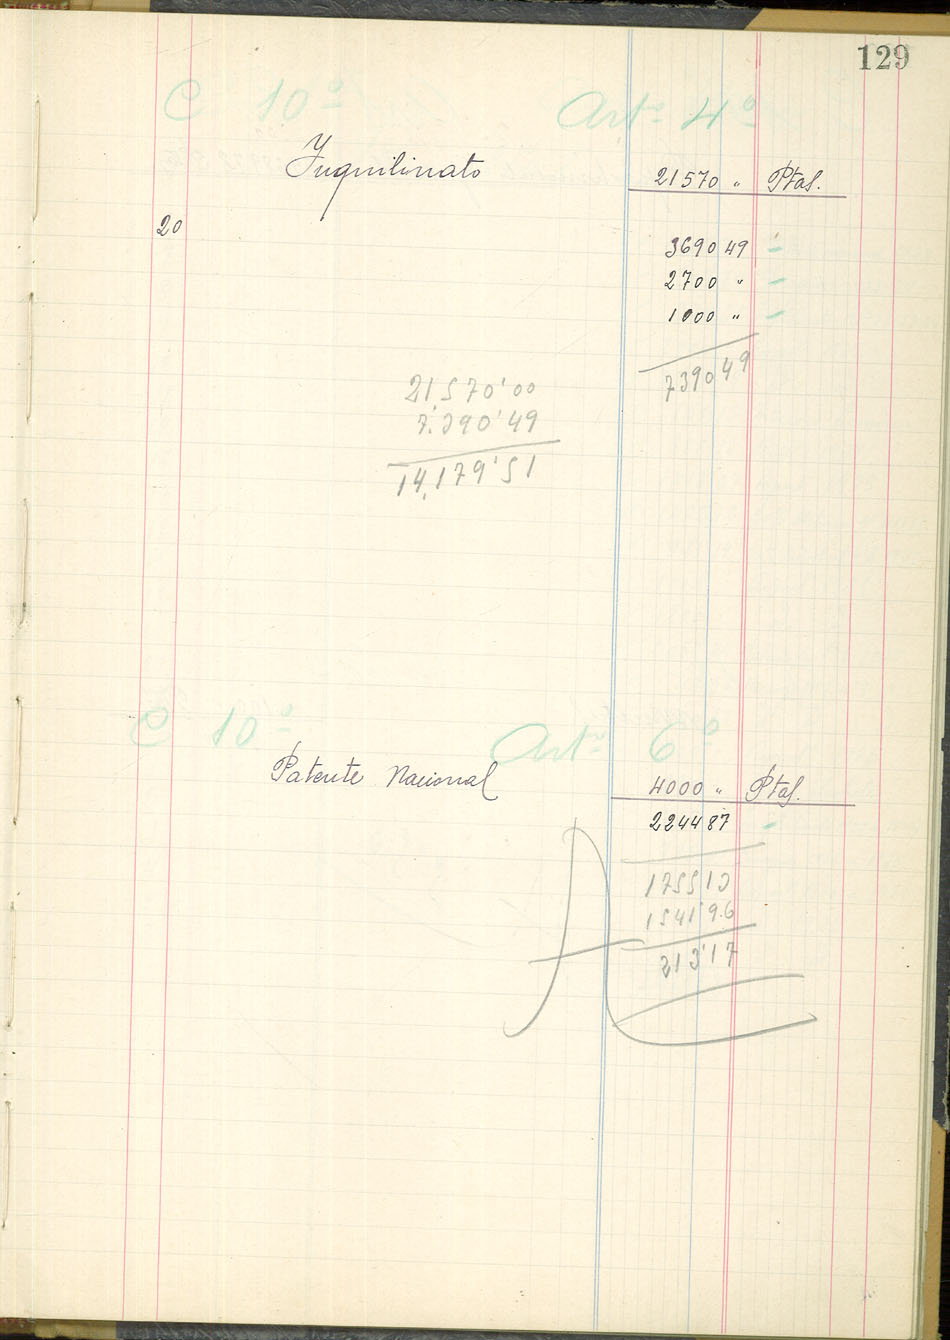 129
C 10º Artº 4º
Inquilinato 21570 " Ptas.
20
3690 49 -
2700 " -
1000 " -
7390 49
21,570'00
7.390'49
14,179'51
C 10º Artº 6º
Patente Nacional 4000 " Ptas.
2244 87 -
1755 13
1541 96
213'17